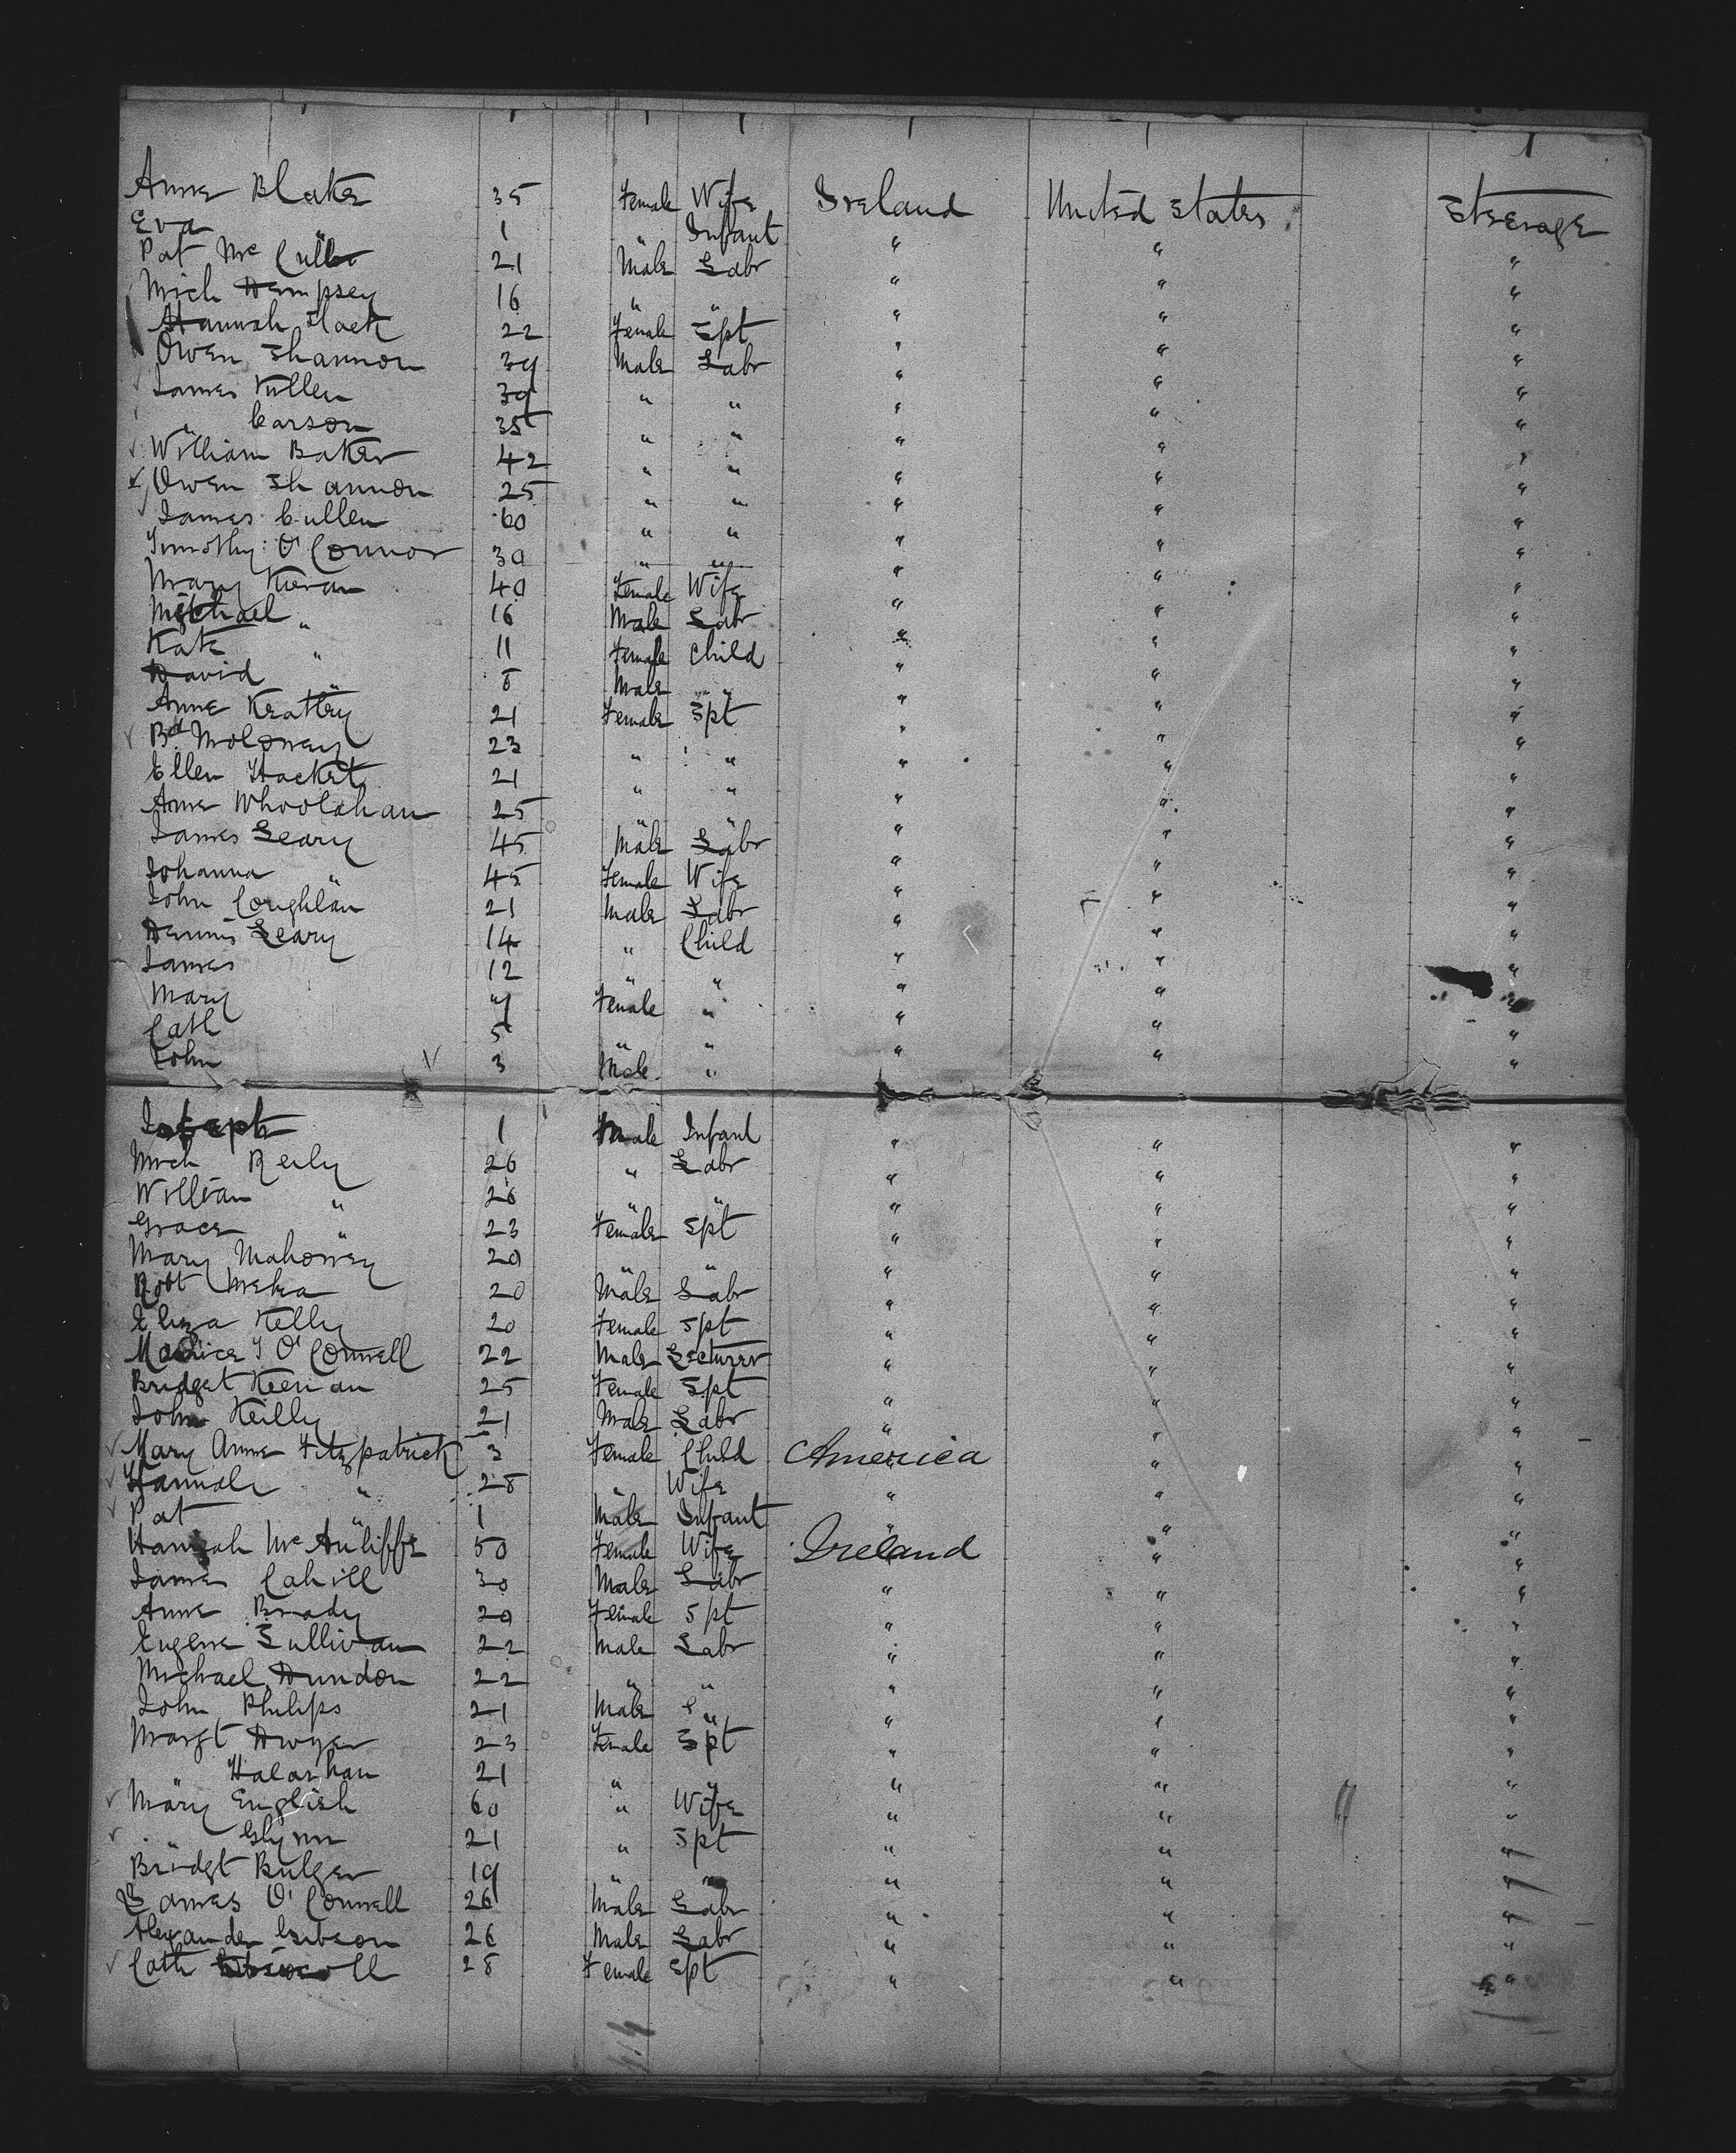 Anne Blake 35 Female Wife Ireland United States Steerage
Eva " 1 " Infant " " "
Pat Mc Cullen 21 Male Labr " " "
Mich Dempsey 16 " " " " "
Hannah Slack 22 Female Spt " " "
Owen Shannon 39 Male Labr " " "
James Killen 39 " " " " "
" Carson 35 " " " " "
William Baker 42 " " " " "
Owen Shannon 25 " " " " "
James Cullen 60 " " " " "
Timothy O'Connor 30 " " " " "
Mary Kieran 40 Female Wife " " "
Michael " 16 Male Labr " " "
Kate " 11 Female Child " " "
David " 8 Male " " " "
Anne Keatley 21 Female Spt " " "
Bd Moloney 23 " " " " "
Ellen Hacket 21 " " " " "
Anne Whoolahan 25 " " " " "
James Leary 45 Male Labr " " "
Johanna " 45 Female Wife " " "
John Coughlan 21 Male Labr " " "
Dennis Leary 14 " Child " " "
James 12 " " " " "
Mary Female " " " "
Cath 5 " " " " "
John 3 Male " " " "
Joseph 1 Male Infant " " "
Mich Reily 26 " Labr " " "
William " 26 " " " " "
Grace " 23 Female Spt " " "
Mary Mahoney 20 " " " " "
Robt 20 Male Labr " " "
Eliza Kelly 20 Female Spt " " "
Maurice J O'Connell 22 Male Lecturer " " "
Bridget Keenan 25 Female Spt " " "
John Reilly 21 Male Labr " " "
Mary Anne Fitzpatrick 3 Female Child America " "
Hannah " 28 " Wife " " "
Pat " 1 Male Infant " " "
Hannah McAuliffe 50 Female Wife Ireland " "
James Cahill 30 Male Labr " " "
Anne Brady 20 Female Spt " " "
Eugene Sullivan 22 Male Labr " " "
Michael Dundon 22 " " " " "
John Philips 21 Male " " " "
Margt Dwyer 23 Female Spt " " "
" 21 " " " " "
Mary English 60 " Wife " " "
" Glynn 21 " Spt " " "
Bridgt Bulger 19 " " " " "
James O'Connell 26 Male Labr " " "
Alexander Gibson 26 Male Labr " " "
Cath 28 Female Spt " " "